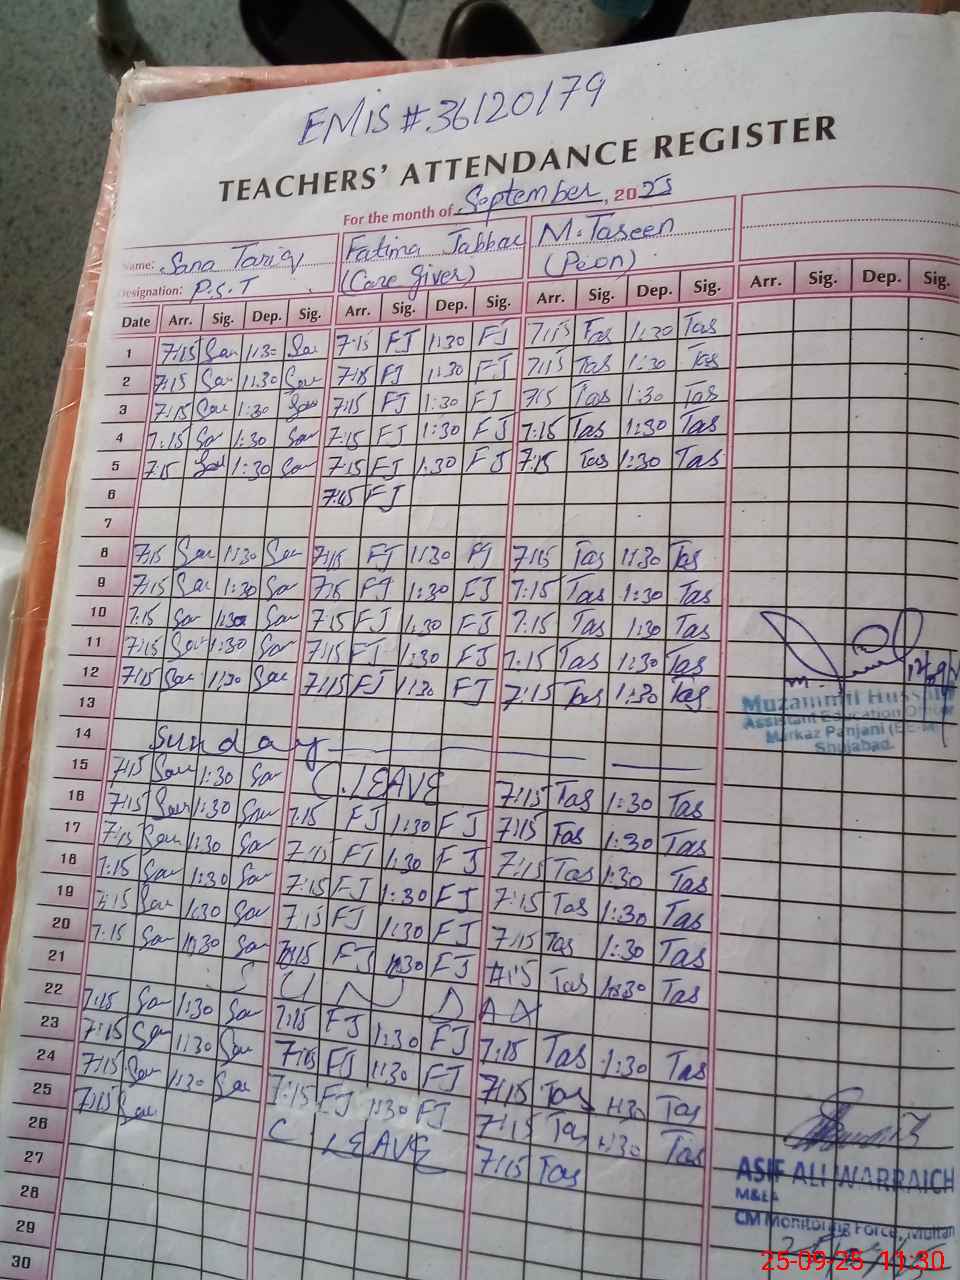 EMIS #.36120179
TEACHERS' ATTENDANCE REGISTER
For the month of September, 2025
Name: Sana Tariq Fatima Jabbar M. Taseen
Designation: P.S.T (Care Giver) (Peon)
Date Arr. Sig. Dep. Sig. Arr. Sig. Dep. Sig. Arr. Sig. Dep. Sig. Arr. Sig. Dep. Sig.
1 7:15 Sau 1:30 Sau 7:15 FJ 1:30 FJ 7:15 Tas 1:30 Tas
2 7:15 Sau 1:30 Sau 7:15 FJ 1:30 FJ 7:15 Tas 1:30 Tas
3 7:15 Sau 1:30 Sau 7:15 FJ 1:30 FJ 7:15 Tas 1:30 Tas
4 7:15 Sau 1:30 Sau 7:15 FJ 1:30 FJ 7:15 Tas 1:30 Tas
5 7:15 Sau 1:30 Sau 7:15 FJ 1:30 FJ 7:15 Tas 1:30 Tas
6 7:15 FJ
7
8 7:15 Sau 1:30 Sau 7:15 FJ 1:30 FJ 7:15 Tas 1:30 Tas
9 7:15 Sau 1:30 Sau 7:15 FJ 1:30 FJ 7:15 Tas 1:30 Tas
10 7:15 Sau 1:30 Sau 7:15 FJ 1:30 FJ 7:15 Tas 1:30 Tas
11 7:15 Sau 1:30 Sau 7:15 FJ 1:30 FJ 7:15 Tas 1:30 Tas
12 7:15 Sau 1:30 Sau 7:15 FJ 1:30 FJ 7:15 Tas 1:30 Tas
13
Muzammil Hussain
Assistant Education Officer
Markaz Panjani (EE-M)
Shujabad.
14 Sunday
15 7:15 Sau 1:30 Sau C.LEAVE 7:15 Tas 1:30 Tas
16 7:15 Sau 1:30 Sau 7:15 FJ 1:30 FJ 7:15 Tas 1:30 Tas
17 7:15 Sau 1:30 Sau 7:15 FJ 1:30 FJ 7:15 Tas 1:30 Tas
18 7:15 Sau 1:30 Sau 7:15 FJ 1:30 FJ 7:15 Tas 1:30 Tas
19 7:15 Sau 1:30 Sau 7:15 FJ 1:30 FJ 7:15 Tas 1:30 Tas
20 7:15 Sau 1:30 Sau 7:15 FJ 1:30 FJ 7:15 Tas 1:30 Tas
21 SUNDAY
22 7:15 Sau 1:30 Sau 7:15 FJ 1:30 FJ 7:15 Tas 1:30 Tas
23 7:15 Sau 1:30 Sau 7:15 FJ 1:30 FJ 7:15 Tas 1:30 Tas
24 7:15 Sau 1:30 Sau 7:15 FJ 1:30 FJ 7:15 Tas 1:30 Tas
25 7:15 Sau C.LEAVE 7:15 Tas
26
27
28
29
30
ASIF ALI WARRAICH
M&EA
CM Monitoring Force, Multan
25-09-25 11:30